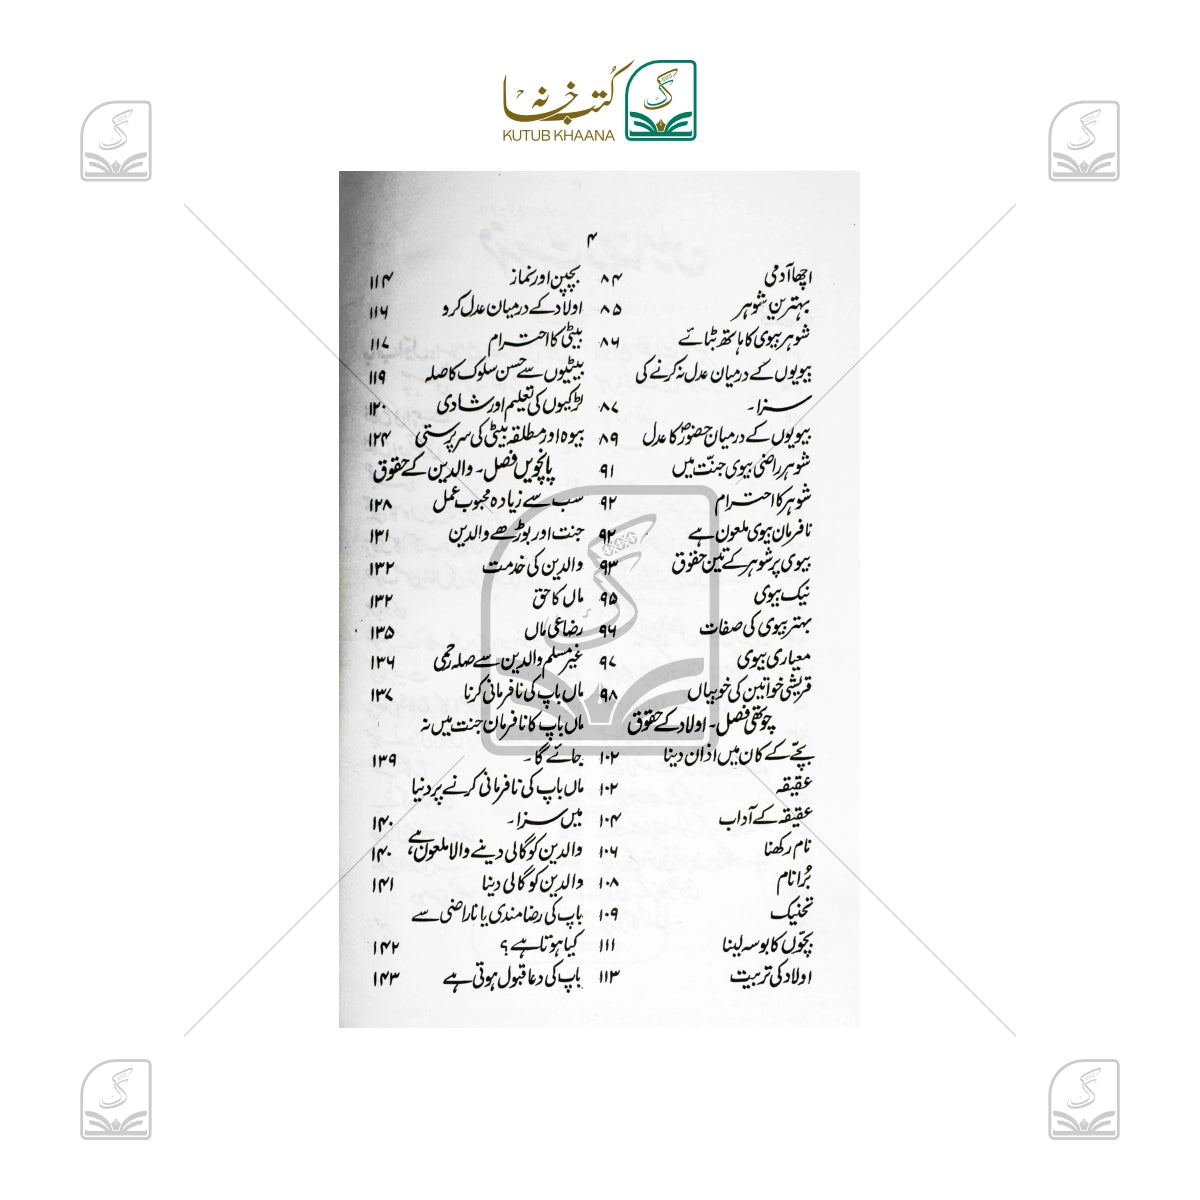 کتب خانہ
KUTUB KHAANA
۴
اچھا آدمی ۸۴
بہترین شوہر ۸۵
شوہر بیوی کا ہاتھ بٹائے ۸۶
بیویوں کے درمیان عدل نہ کرنے کی
سزا۔ ۸۷
بیویوں کے درمیان حضورؐ کا عدل ۸۹
شوہر راضی بیوی جنّت میں ۹۱
شوہر کا احترام ۹۲
نافرمان بیوی ملعون ہے ۹۲
بیوی پر شوہر کے تین حقوق ۹۳
نیک بیوی ۹۵
بہتر بیوی کی صفات ۹۶
معیاری بیوی ۹۷
قریشی خواتین کی خوبیاں ۹۸
چوتھی فصل۔ اولاد کے حقوق
بچّے کے کان میں اذان دینا ۱۰۲
عقیقہ ۱۰۲
عقیقہ کے آداب ۱۰۴
نام رکھنا ۱۰۶
بُرا نام ۱۰۸
تحنیک ۱۰۹
بچّوں کا بوسہ لینا ۱۱۱
اولاد کی تربیت ۱۱۳
بچپن اور نماز ۱۱۴
اولاد کے درمیان عدل کرو ۱۱۶
بیٹی کا احترام ۱۱۷
بیٹیوں سے حسن سلوک کا صلہ ۱۱۹
لڑکیوں کی تعلیم اور شادی ۱۲۰
بیوہ اور مطلقہ بیٹی کی سرپرستی ۱۲۴
پانچویں فصل۔ والدین کے حقوق
سب سے زیادہ محبوب عمل ۱۲۸
جنت اور بوڑھے والدین ۱۳۱
والدین کی خدمت ۱۳۲
ماں کا حق ۱۳۲
رضاعی ماں ۱۳۵
غیر مسلم والدین سے صلہ رحمی ۱۳۶
ماں باپ کی نافرمانی کرنا ۱۳۷
ماں باپ کا نافرمان جنت میں نہ
جائے گا۔ ۱۳۹
ماں باپ کی نافرمانی کرنے پر دنیا
میں سزا۔ ۱۴۰
والدین کو گالی دینے والا ملعون ہے ۱۴۰
والدین کو گالی دینا ۱۴۱
باپ کی رضامندی یا ناراضی سے
کیا ہوتا ہے؟ ۱۴۲
باپ کی دعا قبول ہوتی ہے ۱۴۳